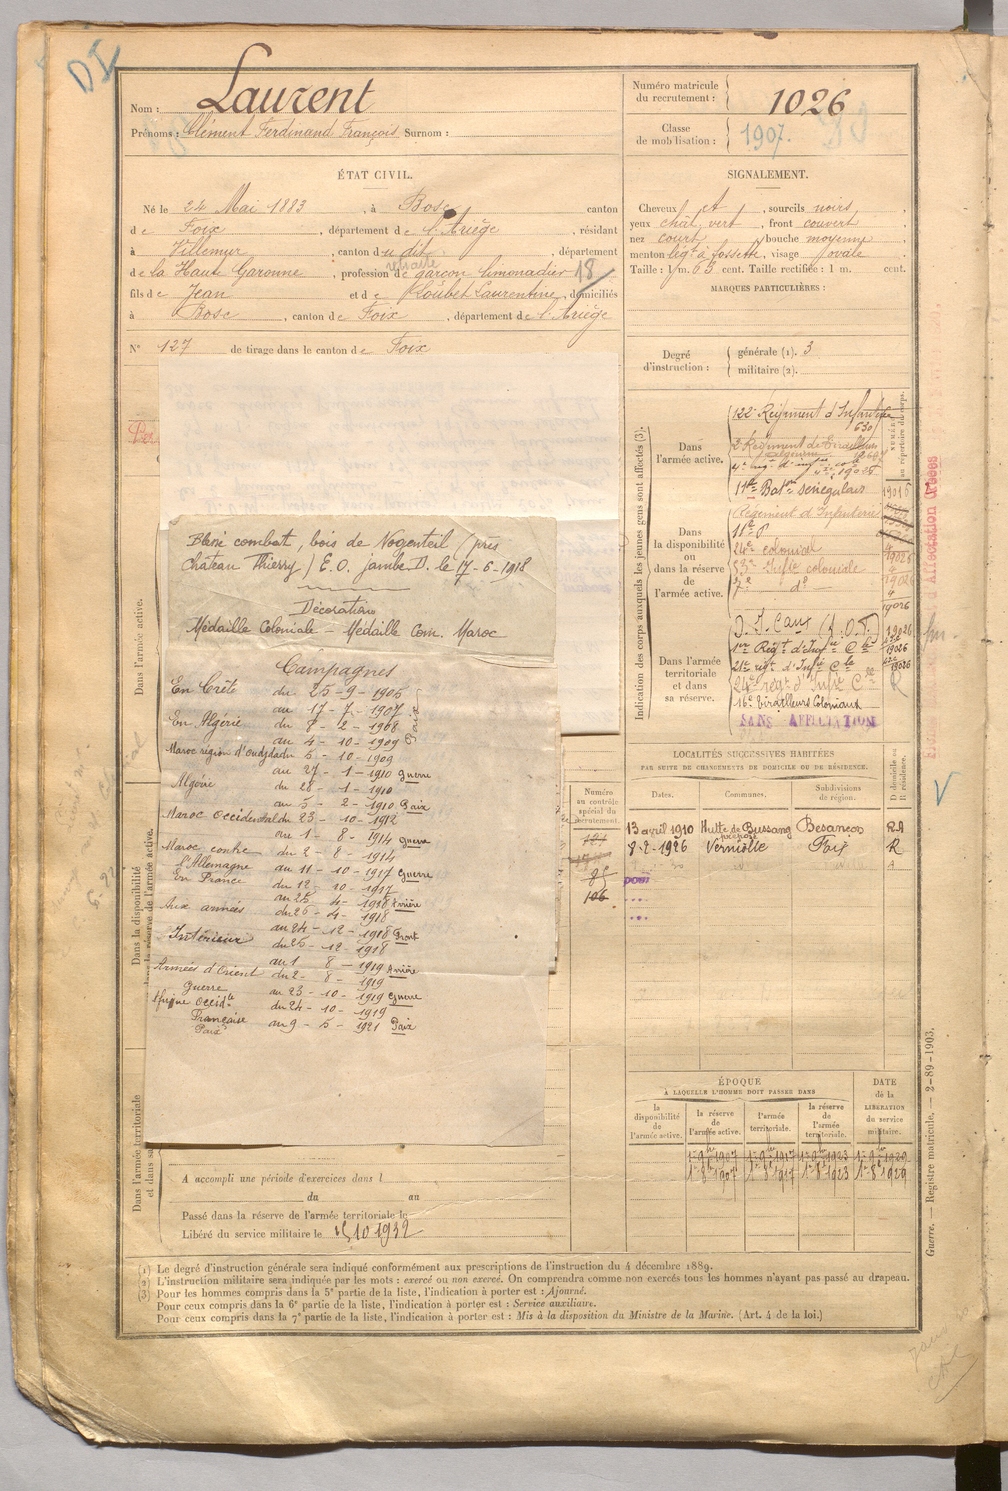 DI
Nom : Laurent
Prénoms : Clément Ferdinand François Surnom :
Numéro matricule du recrutement : 1026
Classe de mobilisation : 1907.
ÉTAT CIVIL.
Né le 24 Mai 1883, à Bosc canton
de Foix, département de l'Ariège, résidant
à Villemur, canton du dit, département
retraité
de la Haute Garonne, profession de garçon limonadier 18
fils de Jean et de Loubet Laurentine, domiciliés
à Bosc, canton de Foix, département de l'Ariège
N° 127 de tirage dans le canton de Foix
SIGNALEMENT.
Cheveux ct, sourcils noirs,
yeux chât. vert, front couvert
nez court, bouche moyenne
menton lég. à fossette, visage ovale
Taille : 1 m. 63 cent. Taille rectifiée : 1 m. cent.
MARQUES PARTICULIÈRES :
Degré d'instruction : générale (1). 3
militaire (2).
Indication des corps auxquels les jeunes gens sont affectés (3).
NUMÉRO au répertoire du corps.
Dans l'armée active.
122e Régiment d'Infanterie
630
2 Régiment de Tirailleurs
11e Baton sénégalais
Dans la disponibilité ou dans la réserve de l'armée active.
Régiment d'Infanterie
24e colonial
53e Infie coloniale
7e do
Dans l'armée territoriale et dans sa réserve.
1er Régt d'Infie Cle
21e régt d'Infie Cle
24e régt d'Infie Cle
16e Tirailleurs Coloniaux
SANS AFFECTATION
Blessé combat, bois de Nogenteil (près
Château Thierry) E.O. jambe D. le 17-6-1918
Décoration
Médaille Coloniale – Médaille Com. Maroc
Campagnes
En Crète du 25-9-1905
au 17-7-1907
En Algérie du 8-2-1908
au 4-10-1909 Paix
Maroc région d'Oudjda du 5-10-1909
au 27-1-1910 Guerre
Algérie du 28-1-1910
au 5-2-1910 Paix
Maroc Occidental du 23-10-1912
au 1-8-1914 guerre
Maroc contre l'Allemagne du 2-8-1914
au 11-10-1917 Guerre
En France du 12-10-1917
au 25-4-1918 Arrière
Aux armées du 26-4-1918
au 24-12-1918 Front
Intérieur du 25-12-1918
au 1-8-1919 Arrière
Armées d'Orient du 2-8-1919
Guerre au 23-10-1919 Guerre
Afrique Occidle du 24-10-1919
Française
Paix au 9-5-1921 Paix
Dans l'armée active.
Dans la disponibilité
la réserve de l'armée active.
Dans l'armée territoriale
et dans sa
LOCALITÉS SUCCESSIVES HABITÉES
PAR SUITE DE CHANGEMENTS DE DOMICILE OU DE RÉSIDENCE.
Numéro au contrôle spécial du recrutement.
Dates. Communes. Subdivisions de région. D domicile ou R résidence.
121 13 avril 1910 Hutte de Bussang Besançon RA
8-2-1926 Verniolle Foix R
85
106
ÉPOQUE
À LAQUELLE L'HOMME DOIT PASSER DANS
DATE de la LIBÉRATION du service militaire.
la disponibilité de l'armée active. la réserve de l'armée active. l'armée territoriale. la réserve de l'armée territoriale.
1er 8bre 1907 1er 8bre 1917 1er 8bre 1923 1er 8bre 1929
A accompli une période d'exercices dans l
du au
Passé dans la réserve de l'armée territoriale le
Libéré du service militaire le 15 10 1932
(1) Le degré d'instruction générale sera indiqué conformément aux prescriptions de l'instruction du 4 décembre 1889.
(2) L'instruction militaire sera indiquée par les mots : exercé ou non exercé. On comprendra comme non exercés tous les hommes n'ayant pas passé au drapeau.
(3) Pour les hommes compris dans la 5e partie de la liste, l'indication à porter est : Ajourné.
Pour ceux compris dans la 6e partie de la liste, l'indication à porter est : Service auxiliaire.
Pour ceux compris dans la 7e partie de la liste, l'indication à porter est : Mis à la disposition du Ministre de la Marine. (Art. 4 de la loi.)
Guerre. — Registre matricule. — 2-89-1903.